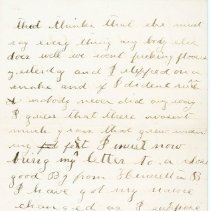 that thinks that she must
say every thing my body else
does well we went picking flowers
yesterday and I stepped on a
snake and I did ent
nobody never did any way
I guess that there wasent
much grass that grew under
my feet I must now
bring my letter to a close
good By from
I have got my
changed as I